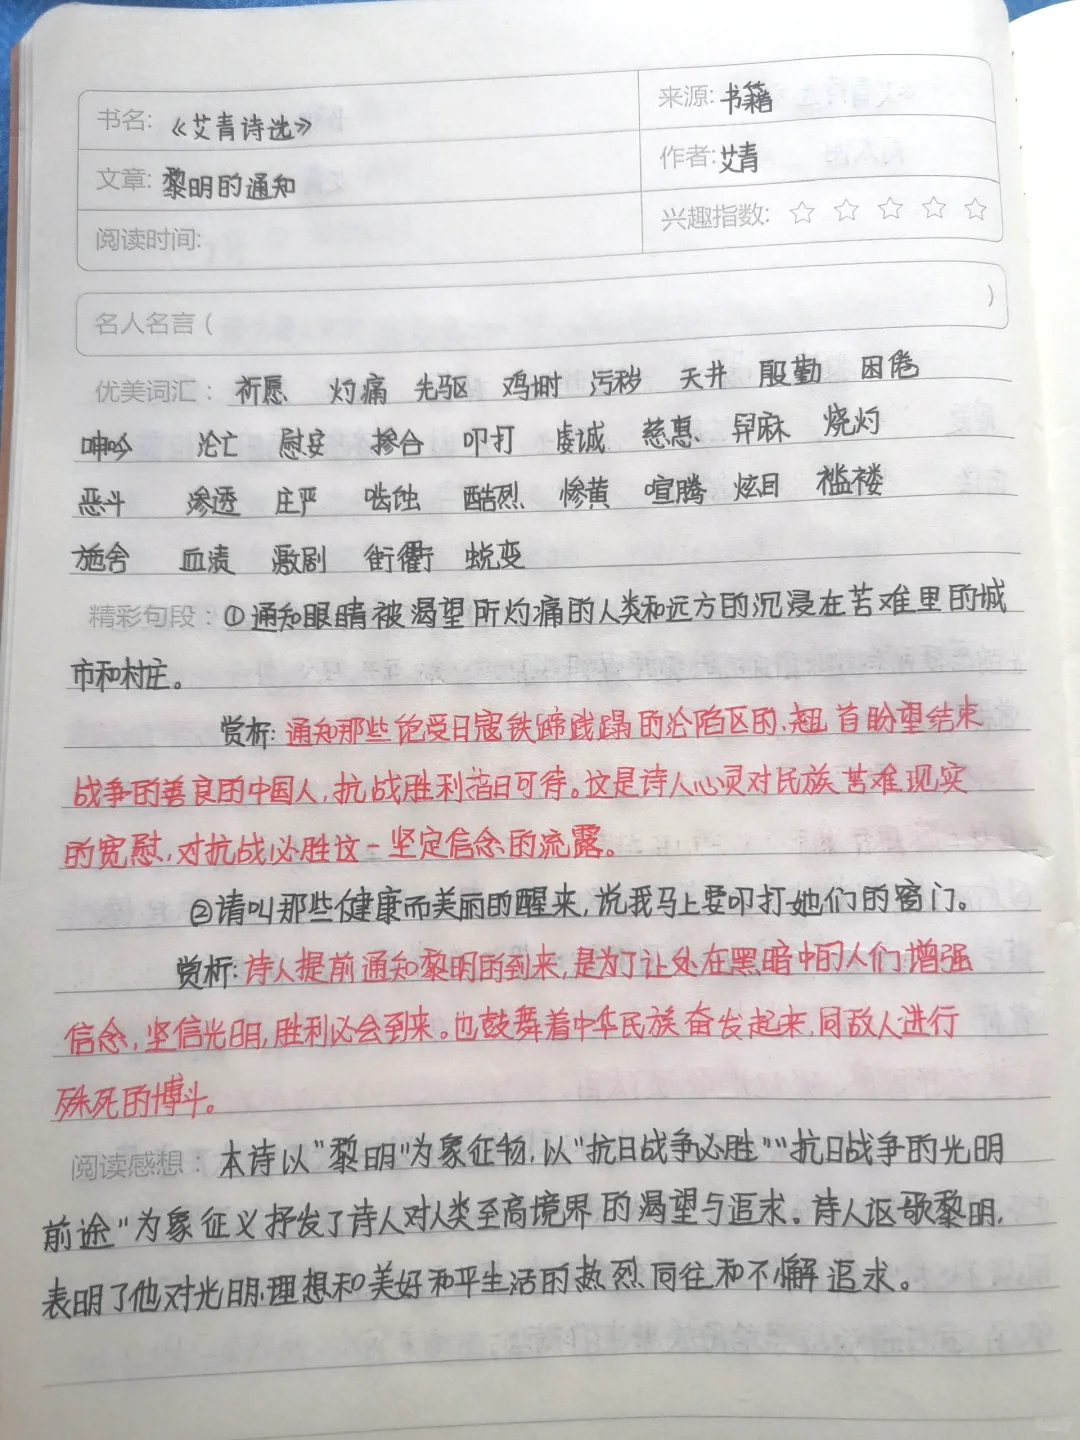 书名: 《艾青诗选》
来源: 书籍
文章: 黎明的通知
作者: 艾青
阅读时间:
兴趣指数: ☆ ☆ ☆ ☆ ☆
名人名言 ( )
优美词汇: 祈愿 灼痛 先驱 鸡埘 污秽 天井 殷勤 困倦
呻吟 沦亡 慰安 掺合 叩打 虔诚 慈惠 舁麻 烧灼
恶斗 渗透 庄严 啮蚀 酷烈 惨黄 喧腾 炫目 褴褛
施舍 血渍 激剧 街衢 蜕变
精彩句段: ①通知眼睛被渴望所灼痛的人类和远方的沉浸在苦难里的城
市和村庄。
赏析: 通知那些饱受日寇铁蹄践蹋的沦陷区的、翘首盼望结束
战争的善良的中国人,抗战胜利指日可待。这是诗人心灵对民族苦难现实
的宽慰,对抗战必胜这一坚定信念的流露。
②请叫那些健康而美丽的醒来,说我马上要叩打她们的窗门。
赏析: 诗人提前通知黎明的到来,是为了让处在黑暗中的人们增强
信念,坚信光明,胜利必会到来。也鼓舞着中华民族奋发起来,同敌人进行
殊死的博斗。
阅读感想: 本诗以"黎明"为象征物,以"抗日战争必胜""抗日战争的光明
前途"为象征义抒发了诗人对人类至高境界的渴望与追求。诗人讴歌黎明,
表明了他对光明、理想和美好和平生活的热烈向往和不懈追求。